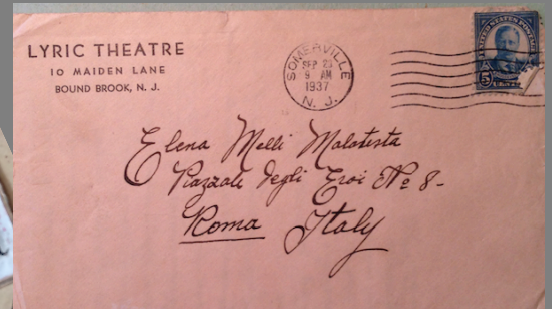 LYRIC THEATRE
10 MAIDEN LANE
BOUND BROOK, N. J.
SOMERVILLE
SEP 23
9 AM
1937
N. J.
UNITED STATES POSTAGE
5
Elena Melli Malatesta
Piazzale degli Eroi No 8-
Roma Italy